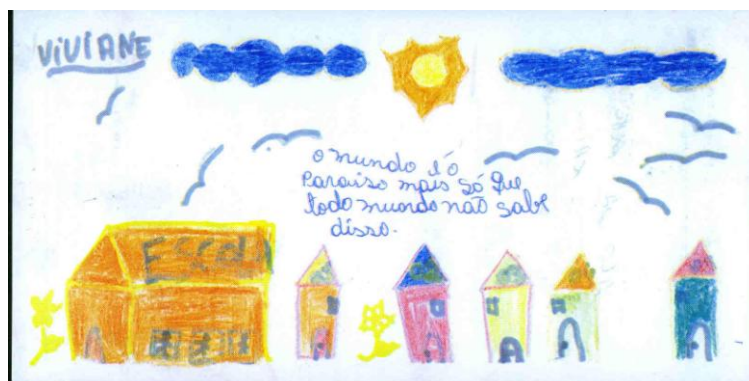 VIVIANE
o mundo é o
Paraiso mais só que
todo mundo não sabe
disso.
ESCOLA